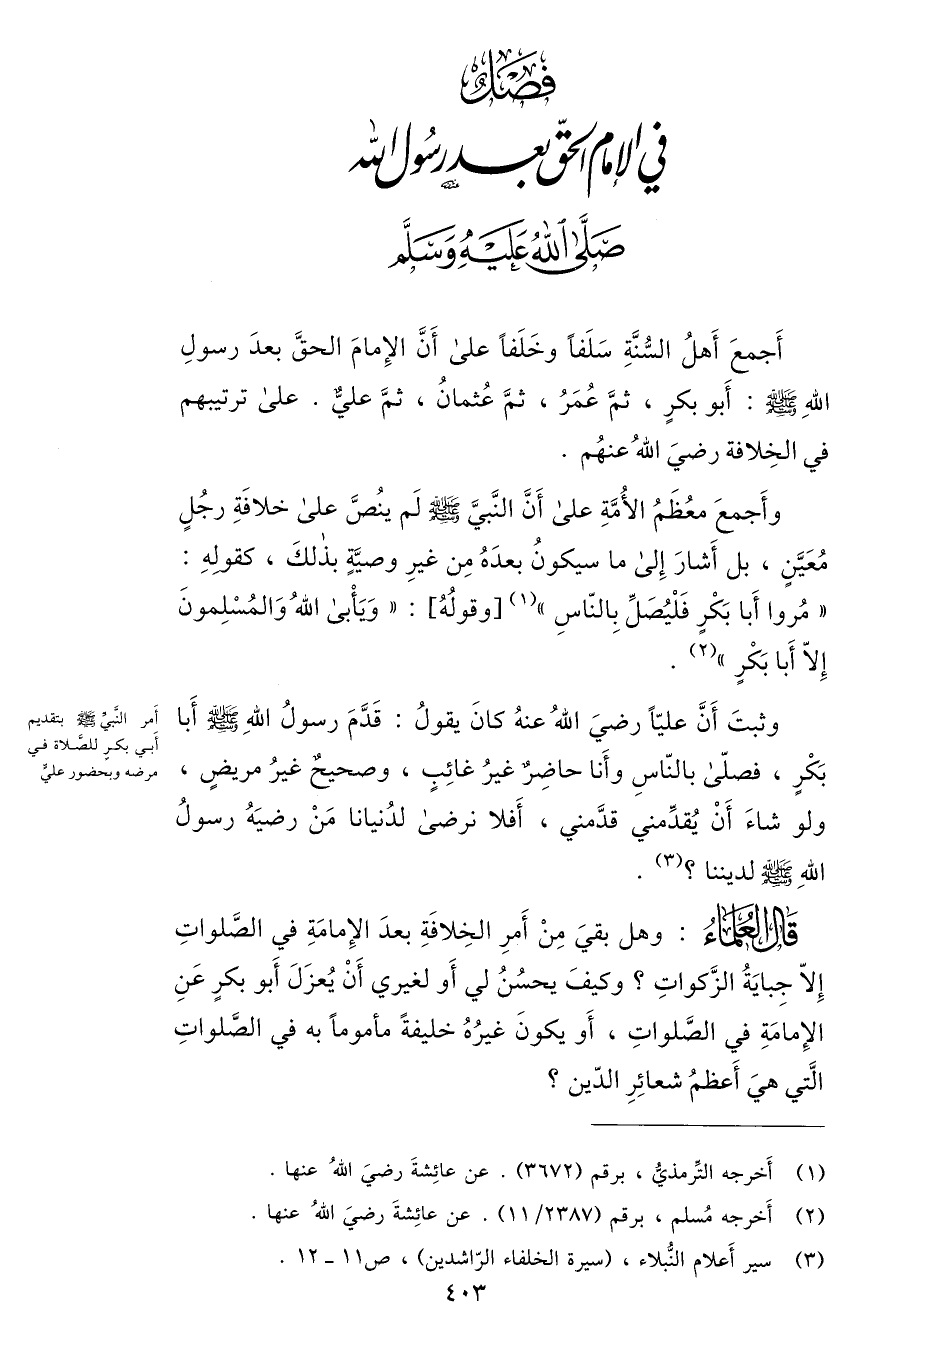 فَصْلٌ
في الإمام الحقّ بعد رسول الله
صَلَّى ٱللَّهُ عَلَيْهِ وَسَلَّم
أَجمعَ أَهلُ السُّنَّةِ سَلَفاً وخَلَفاً علىٰ أَنَّ الإِمامَ الحقَّ بعدَ رسولِ
اللهِ ﷺ : أَبو بكرٍ ، ثمَّ عُمَرُ ، ثمَّ عُثمانُ ، ثمَّ عليٌّ . علىٰ ترتيبهم
في الخِلافة رضيَ اللهُ عنهُم .
وأَجمعَ معُظَمُ الأُمَّةِ علىٰ أَنَّ النَّبيَّ ﷺ لَم ينُصَّ علىٰ خلافَةِ رجُلٍ
مُعَيَّنٍ ، بل أَشارَ إِلىٰ ما سيكونُ بعدَهُ مِن غيرِ وصيَّةٍ بذٰلكَ ، كقولِهِ :
« مُروا أَبا بَكْرٍ فَلْيُصَلِّ بِالنّاسِ »(١) [وقولُهُ] : « وَيَأْبىٰ اللهُ وَالمُسْلِمونَ
إِلاّ أَبا بَكْرٍ »(٢) .
وثبتَ أَنَّ عليّاً رضيَ اللهُ عنهُ كانَ يقولُ : قَدَّمَ رسولُ اللهِ ﷺ أَبا
بَكْرٍ ، فصلّىٰ بالنّاسِ وأَنا حاضِرٌ غيرُ غائبٍ ، وصحيحٌ غيرُ مريضٍ ،
ولو شاءَ أَنْ يُقدِّمني قدَّمني ، أَفلا نرضىٰ لدُنيانا مَنْ رضيَهُ رسولُ
اللهِ ﷺ لديننا ؟(٣) .
أَمر النَّبيِّ ﷺ بتقديم
أَبي بكرٍ للصَّلاة في
مرضه وبحضور عليٍّ
قَالَ العُلَمَاءُ : وهل بقيَ مِنْ أَمرِ الخِلافَةِ بعدَ الإِمامَةِ في الصَّلواتِ
إِلاّ جِبايَةُ الزَّكواتِ ؟ وكيفَ يحسُنُ لي أَو لغيري أَنْ يُعزَلَ أَبو بكرٍ عَنِ
الإِمامَةِ في الصَّلواتِ ، أَو يكونَ غيرُهُ خليفةً مأموماً به في الصَّلواتِ
الَّتي هيَ أَعظمُ شعائِرِ الدّين ؟
(١) أَخرجه التِّرمذيُّ ، برقم (٣٦٧٢) . عن عائِشةَ رضيَ اللهُ عنها .
(٢) أَخرجه مُسلم ، برقم (١١/٢٣٨٧) . عن عائِشةَ رضيَ اللهُ عنها .
(٣) سير أَعلام النُّبلاء ، (سيرة الخلفاء الرّاشدين) ، ص١١ ـ ١٢ .
٤٠٣